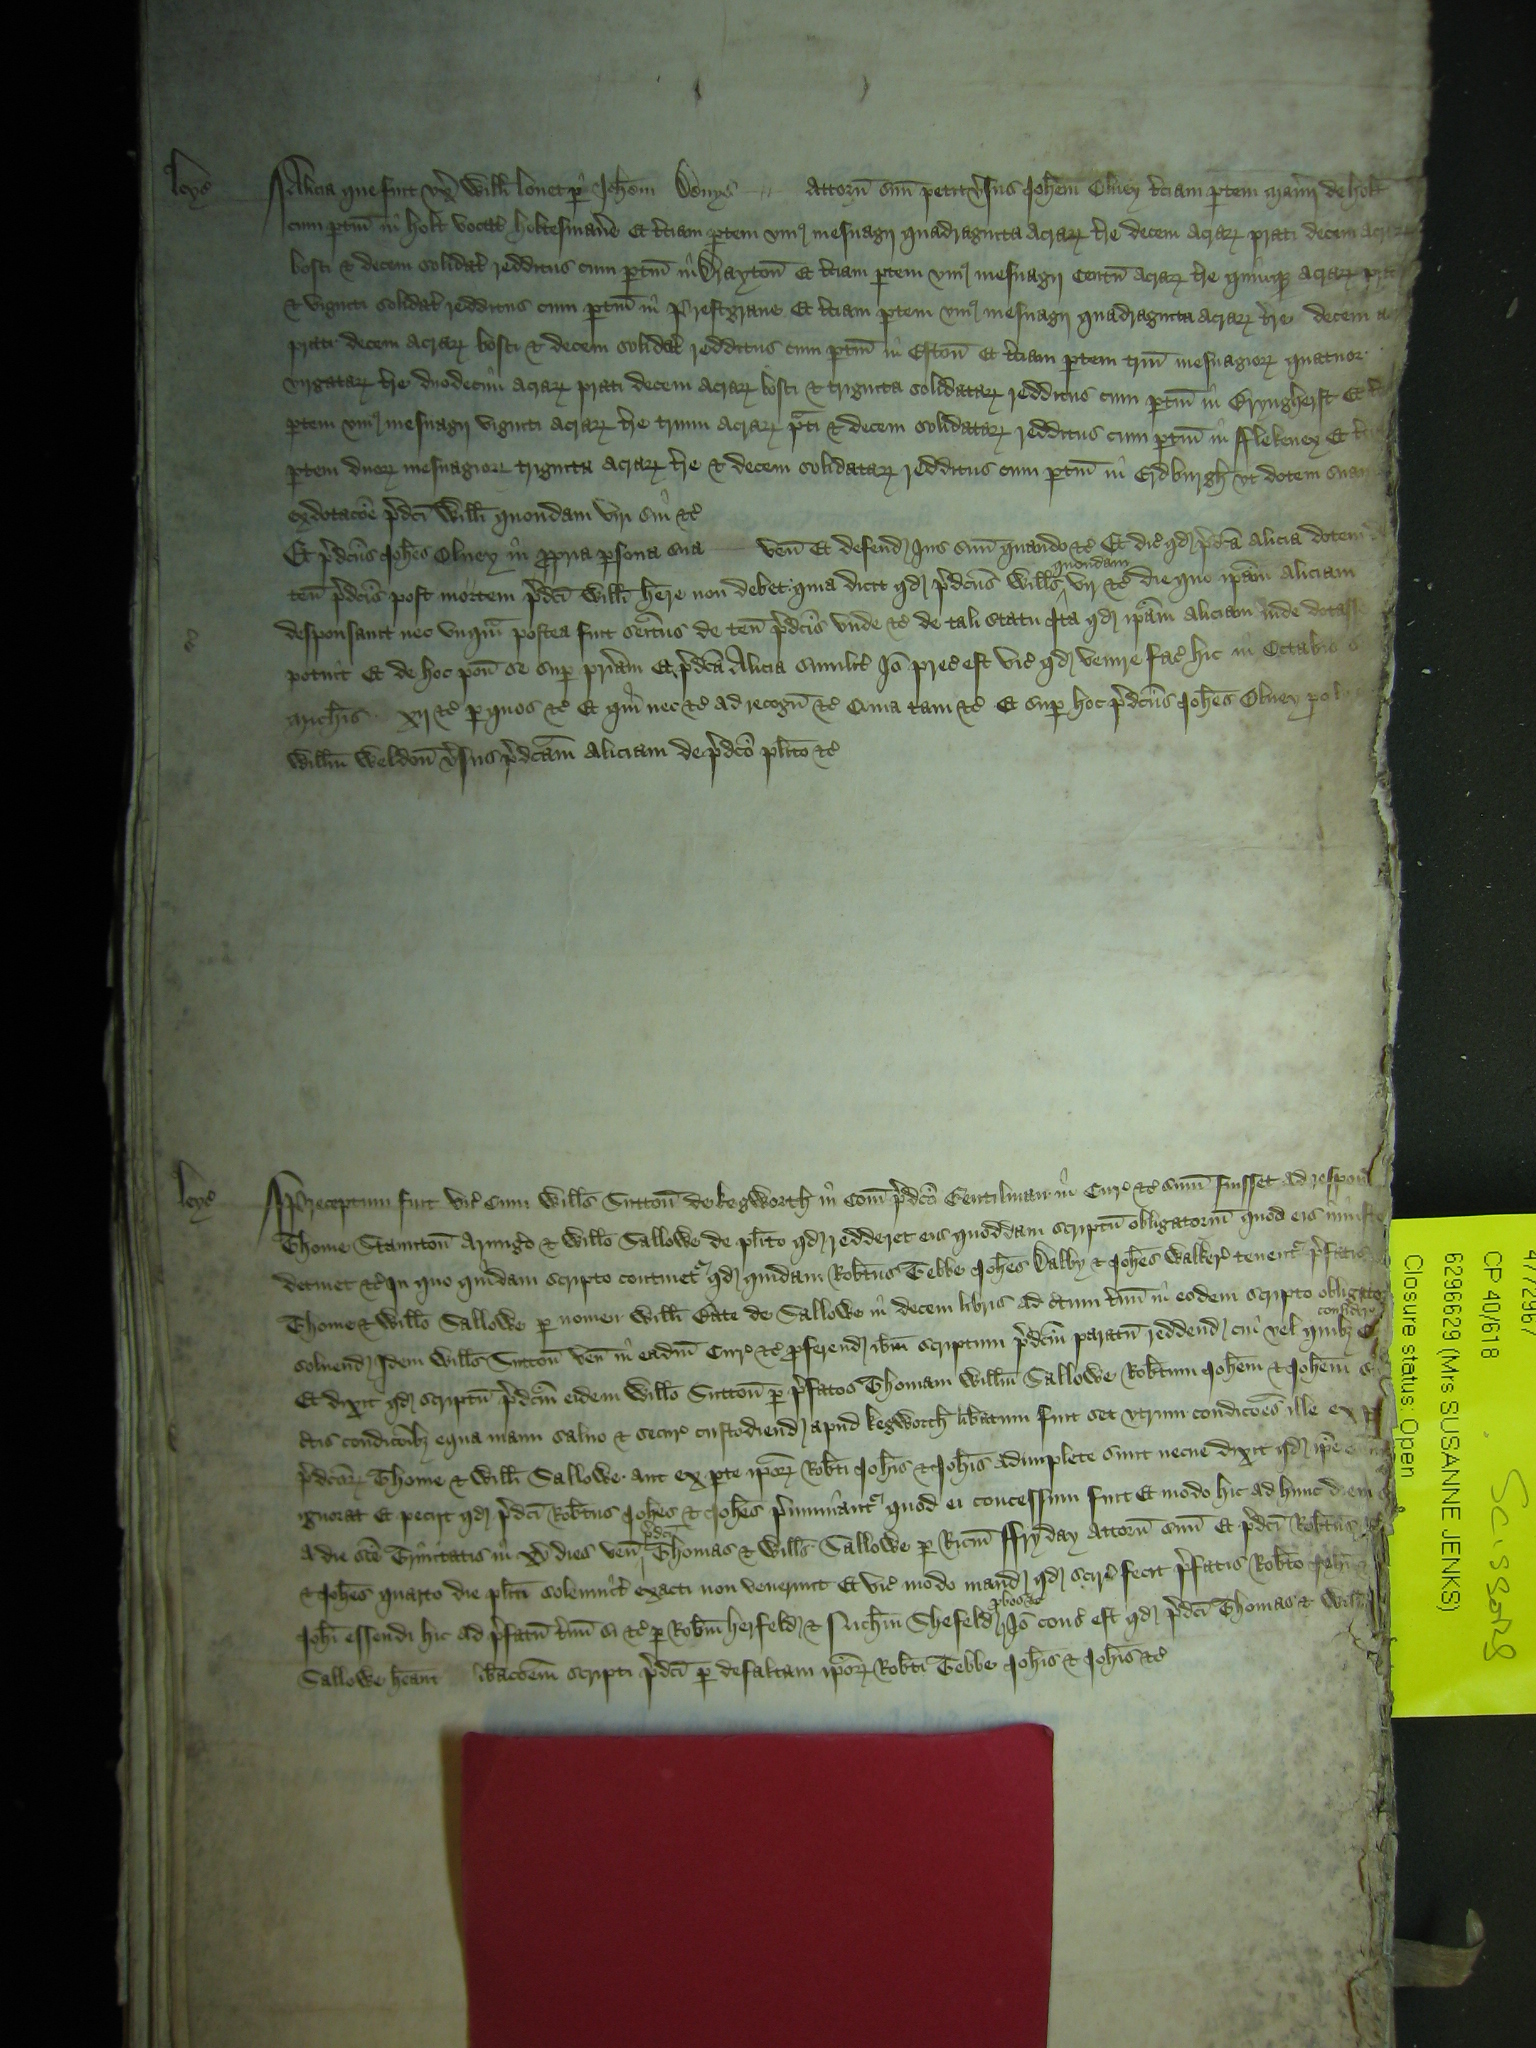 leyc̄
Alicia que fuit vx̄ Willi louet p Joħem Denys attorn̄ suū petit v̄sus Joħem Olney t̄ciam ptem man̄ij de holt
cum ptin̄ in holt vocat̄ holtesman̄e Et t̄ciam ptem vni⁹ mesuagij quadraginta acraꝝ t̄re decem acraꝝ prati decem acraꝝ
bosci & decem solidat̄ redditus cum ptin̄ in Drayton̄ Et t̄ciam ptem vni⁹ mesuagij Centū acraꝝ t̄re quinqꝫ acraꝝ prati
& viginti solidat̄ redditus cum ptin̄ in Prestgraue Et t̄ciam ptem vni⁹ mesuagij quadraginta acraꝝ t̄re decem
prati decem acraꝝ bosci & decem solidat̄ redditus cum ptin̄ in Eston̄ Et t̄ciam ptem triū mesuagioꝝ quatuor
virgataꝝ t̄re duodecim acraꝝ prati decem acraꝝ bosci & triginta solidataꝝ redditus cum ptin̄ in Bryngherst Et
ptem vni⁹ mesuagij viginti acraꝝ t̄re trium acraꝝ p̄ti & decem solidataꝝ redditus cum ptin̄ in Flekeney Et
ptem duoꝝ mesuagioꝝ triginta acraꝝ t̄re & decem solidataꝝ redditus cum ptin̄ in Erdburgh vt dotem suam
ex dotac̄oe p̄dc̄i Willi quondam viri sui &c̄
Et p̄dc̄us Joħes Olney in propria persona sua ven̄ Et defend̄ Jus suū quando &c̄ Et dic̄ qd̄ p̄dc̄a Alicia dotem
ten̄ p̄dc̄is post mortem p̄dc̄i Willi h̄ere non debet quia dicit qd̄ p̄dc̄us Wills quondam vir &c̄ die quo ip̄am Aliciam
desponsauit nec vnqm̄ postea fuit seitus de ten̄ p̄dc̄is vnde &c̄ de tali statu Ita qd̄ ip̄am Aliciam inde dotasse
potuit Et de hoc pon̄ se sup pr̄iam Et p̄dc̄a Alicia similit̄ Jō prec̄ est vic̄ qd̄ venire fac̄ hic in Octabis
Mich̄is xij &c̄ p quos &c̄ Et qui nec &c̄ ad recogn̄ &c̄ Quia tam &c̄ Et sup hoc p̄dc̄us Joħes Olney po lo
Willm̄ Weldon̄ v̄sus p̄dc̄am Aliciam de p̄dc̄o plīto &c̄
leyc̄
Preceptum fuit vic̄ Cum Wills Sutton̄ de kegworth in Com̄ p̄dc̄o Gentilman in Cur̄ &c̄ sum̄ fuisset ad respond
Thome Staunton̄ Armigō & Willo Sallowe de plīto qd̄ redderet eis quoddam scriptū obligatoriū quod eis iniuste
detinet &c̄ In quo quidam scripto continet̄ qd̄ quidam Rob̄tus Tebbe Joħes Dalby & Joħes Walker tenent̄ p̄fatis
Thome & Willo Sallowe p nomen Willi Bate de Sallowe in decem libris ad c̄tum t̄m̄ in eodem scripto obligato
soluend̄ Idem Willus Sutton̄ ven̄ in eadm̄ Cur̄ &c̄ pferend̄ ibm̄ scriptum p̄dc̄m̄ paratū reddend̄ cui vel quibꝫ considē
Et dixit qd̄ scriptū p̄dc̄m̄ eidem Willo Sutton̄ p p̄fatos Thomam Willm̄ Sallowe Rob̄tum Joħem & Joħem
c̄tis condic̄oibꝫ equa manu saluo & secur̄ custodiend̄ apud kegworth lib̄atum fuit set vtrum condic̄oes ille ex p
p̄dc̄oꝝ Thome & Willi Sallowe aut ex pte ip̄oꝝ Rob̄ti Joħis & Joħis adimplete sunt necne dixit qd̄ ip̄e
ignorat Et petijt qd̄ p̄dc̄i Rob̄tus Joħes & Joħes p̄muniant̄ quod ei concessum fuit Et modo hic ad hunc diem
a die sc̄e Trinitatis in xv dies ven̄ p̄dc̄i Thomas & Wills Sallowe p Ric̄m ffryday attorn̄ suū Et p̄dc̄i Rob̄tus
& Joħes quarto die plīti solemnit̄ exacti non venerunt Et vic̄ modo mand̄ qd̄ scir̄ fecit p̄fatis Rob̄to
Joħi essendi hic ad p̄fatū t̄m̄ si &c̄ p Rob̄m herfeld̄ & Nich̄m Shefeld̄ pbos &c̄ Jō cons̄ est qd̄ p̄dc̄i Thomas & Wills
Sallowe h̄eant lib̄ac̄oem scripti p̄dc̄i p defaltam ip̄oꝝ Rob̄ti Tebbe Joħis & Joħis &c̄
CP 40/618
6296629 (Mrs SUSANNE JENKS)
Closure status: Open
Scissors